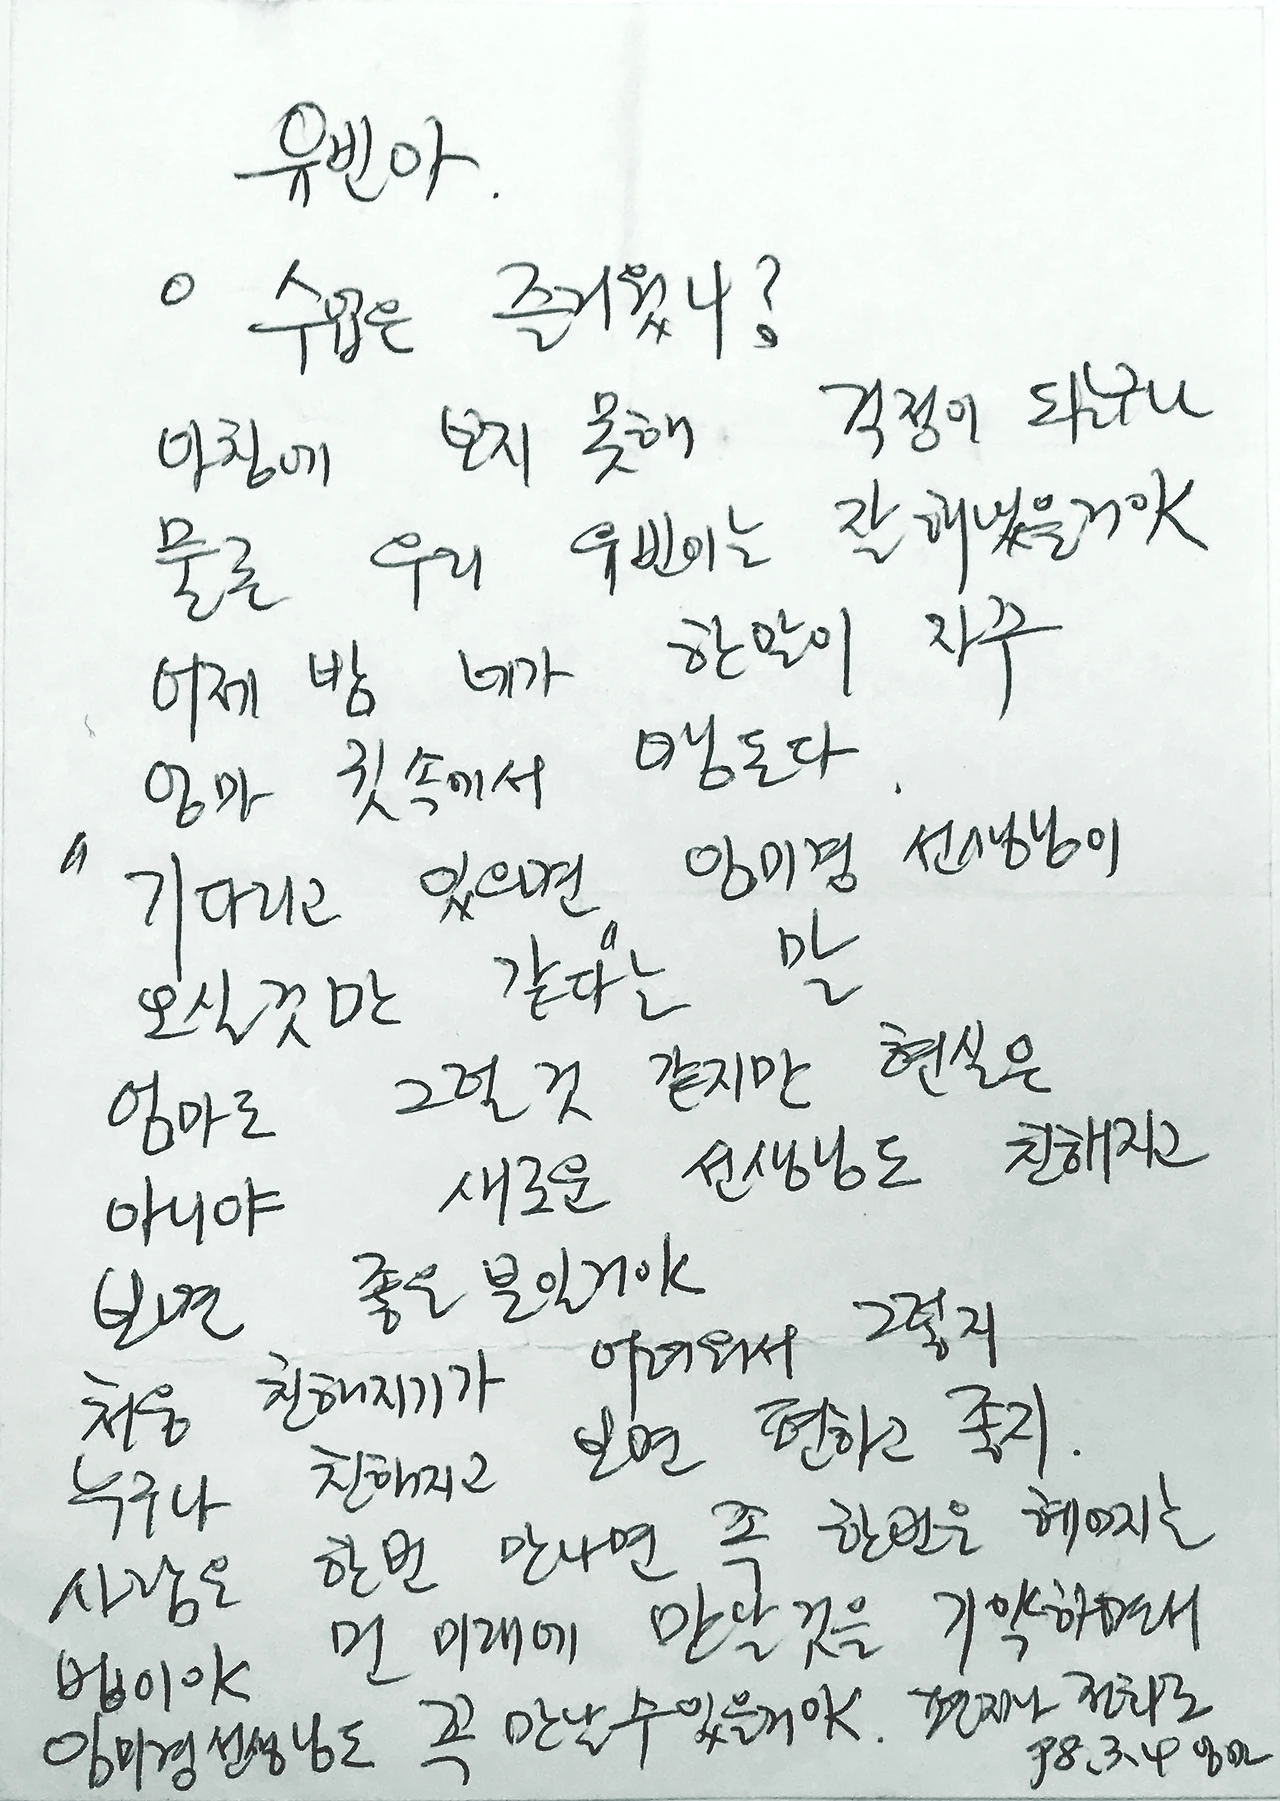 유빈아.
○ 수업은 즐거웠니?
아침에 보지 못해 걱정이 되는구나
물론 우리 유빈이는 잘 해냈을거야
어제 밤 네가 한말이 자꾸
엄마 귓속에서 맴돈다.
"기다리고 있으면 양미경 선생님이
오실것만 같다"는 말
엄마도 그럴 것 같지만 현실은
아니야 새로운 선생님도 친해지고
보면 좋은 분일거야
처음 친해지기가 어려워서 그렇지
누구나 친해지고 보면 편하고 좋지.
사람은 한번 만나면 꼭 한번은 헤어지는
법이야 먼 미래에 만날것을 기약하면서
양미경선생님도 꼭 만날수있을거야. 편지나 전화로
98.3.4 엄마